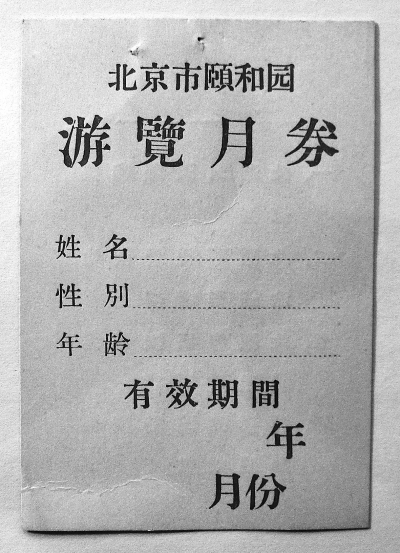 北京市颐和园
游覽月券
姓名
性别
年龄
有效期間
年
月份